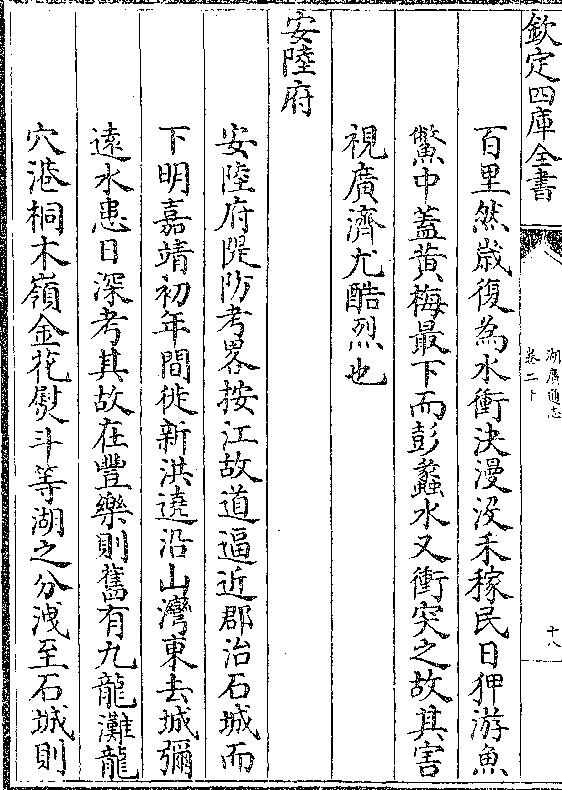 欽定四庫全書
湖廣通志
卷二下
十八
百里然歲復為水衝決漫沒禾稼民日狎游魚
鱉中蓋黃梅最下而彭蠡水又衝突之故其害
視廣濟尤酷烈也
安陸府
安陸府隄防考畧按江故道逼近郡治石城而
下明嘉靖初年間徙新洪遶沿山灣東去城彌
遠水患日深考其故在豐樂則舊有九龍灘龍
穴港桐木嶺金花熨斗等湖之分洩至石城則